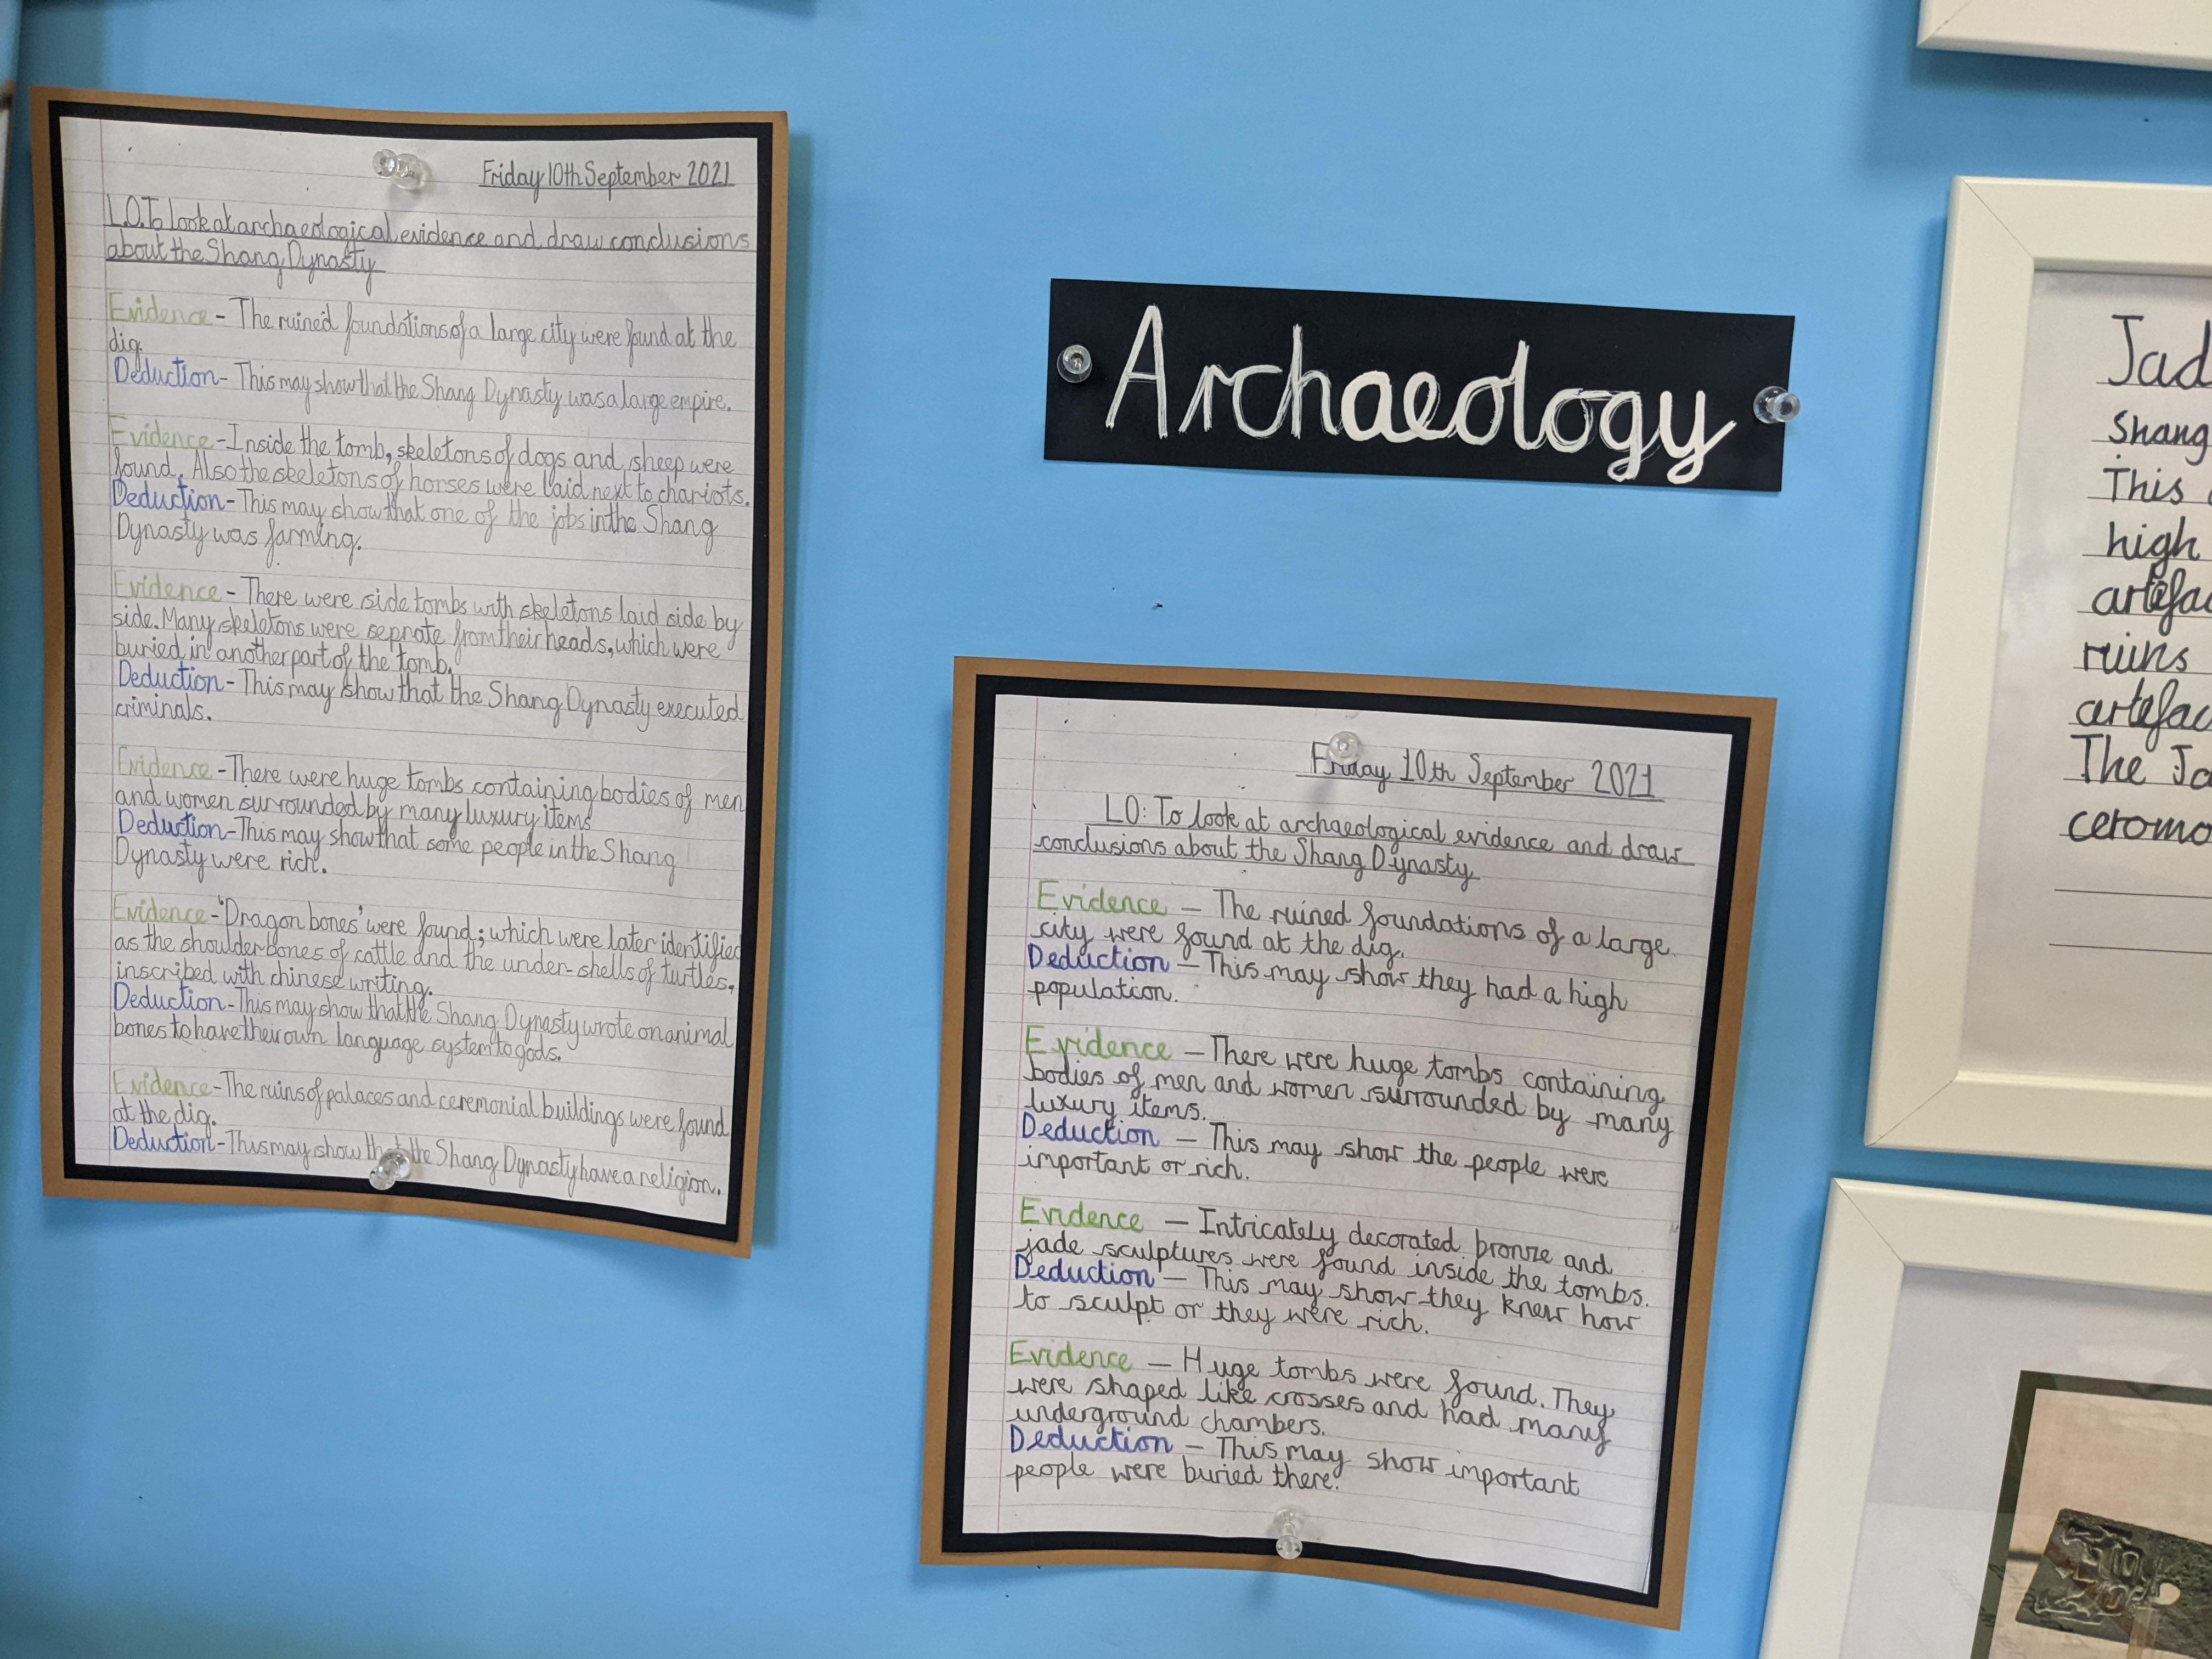 Friday 10th September 2021
L.O. To look at archaeological evidence and draw conclusions
about the Shang Dynasty
Evidence - The ruined foundations of a large city were found at the
dig.
Deduction - This may show that the Shang Dynasty was a large empire.
Evidence - Inside the tomb, skeletons of dogs and sheep were
found. Also the skeletons of horses were laid next to chariots.
Deduction - This may show that one of the jobs in the Shang
Dynasty was farming.
Evidence - There were side tombs with skeletons laid side by
side. Many skeletons were seprate from their heads, which were
buried in another part of the tomb.
Deduction - This may show that the Shang Dynasty executed
criminals.
Evidence - There were huge tombs containing bodies of men
and women surrounded by many luxury items
Deduction - This may show that some people in the Shang
Dynasty were rich.
Evidence - 'Dragon bones' were found; which were later identified
as the shoulder bones of cattle and the under-shells of turtles,
inscribed with chinese writing.
Deduction - This may show that the Shang Dynasty wrote on animal
bones to have their own language system to gods.
Evidence - The ruins of palaces and ceremonial buildings were found
at the dig.
Deduction - This may show that the Shang Dynasty have a religion.
Archaeology
Friday 10th September 2021
LO: To look at archaeological evidence and draw
conclusions about the Shang Dynasty
Evidence — The ruined foundations of a large
city were found at the dig.
Deduction — This may show they had a high
population.
Evidence — There were huge tombs containing
bodies of men and women surrounded by many
luxury items.
Deduction — This may show the people were
important or rich.
Evidence — Intricately decorated bronze and
jade sculptures were found inside the tombs.
Deduction — This may show they knew how
to sculpt or they were rich.
Evidence — Huge tombs were found. They
were shaped like crosses and had many
underground chambers.
Deduction — This may show important
people were buried there.
Jad
Shang
This
high
artefac
ruins
artefac
The Ja
ceromo